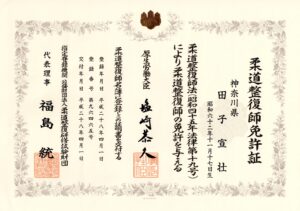 柔道整復師免許証
神奈川県
田子宣壮
昭和六十二年十一月十七日生
柔道整復師法(昭和四十五年法律第十九号)
により柔道整復師の免許を与える
厚生労働大臣 塩崎恭久
柔道整復師名簿に登録し免許証を交付する
登録年月日 平成二十八年四月一日
登録番号
交付年月日 平成二十八年四月一日
指定登録機関 公益財団法人柔道整復研修試験財団
代表理事 福島統